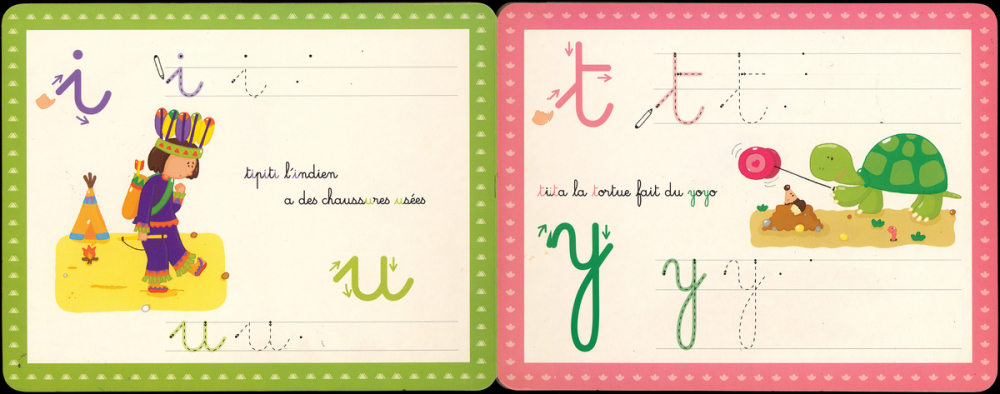 i i i
tipiti l'indien
a des chaussures usées
u
u u
t t t
tiita la tortue fait du yoyo
y
y y